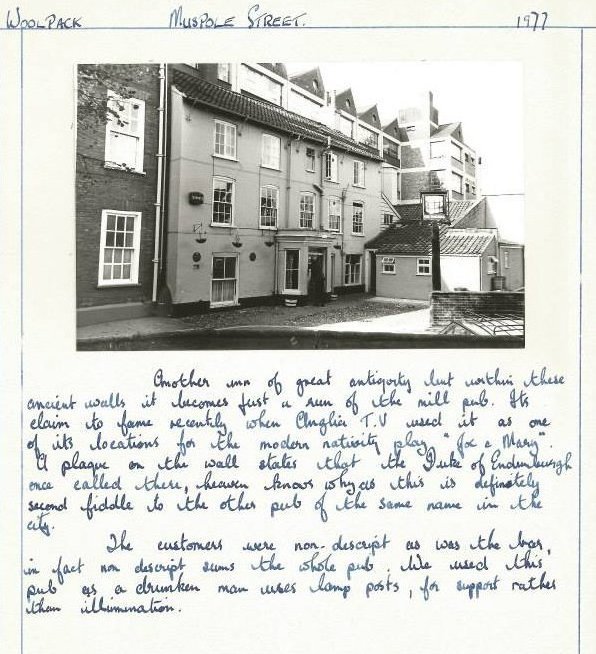 WOOLPACK MUSPOLE STREET. 1977
Another inn of great antiquity but within these
ancient walls it becomes just a run of the mill pub. Its
claim to fame recently when Anglia T.V used it as one
of its locations for the modern nativity play "Joe & Mary".
A plaque on the wall states that the Duke of Endinburgh
once called there, heaven knows why as this is definitely
second fiddle to the other pub of the same name in the
city.
The customers were non-descript as was the beer,
in fact non descript sums the whole pub. We used this
pub as a drunken man uses lamp posts, for support rather
than illumination.